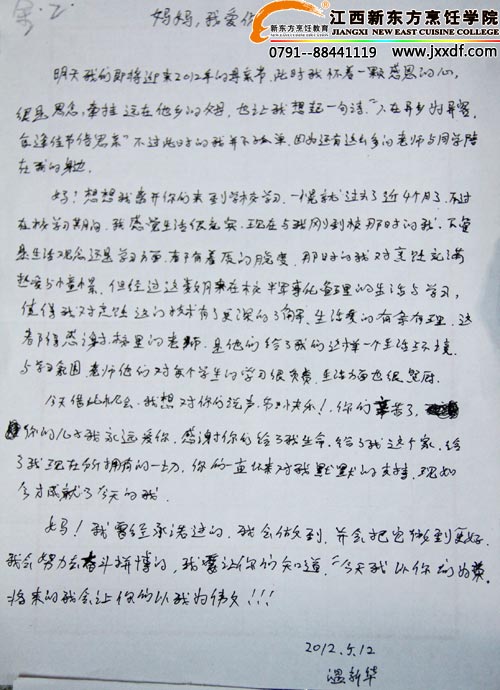 江西新东方烹饪学院
新东方烹饪教育
JIANGXI NEW EAST CUISINE COLLEGE
0791--88441119
www.jxxdf.com
妈妈，我爱你
明天我们即将迎来2012年的母亲节，此时我怀着一颗感恩的心，
很是思念，牵挂远在他乡的父母，也让我想起一句诗，“人在异乡为异客，
每逢佳节倍思亲”不过此时的我并不孤单，因为还有这么多的老师与同学陪
在我的身边。
妈！想想我离开你们来到学校学习，一晃就过去了近4个月了，不过
在校学习期间，我感觉生活很充实，现在与我刚到校那时的我，不管
是生活观念还是学习方面，都有着质的脱变，那时的我对烹饪充满
热爱与憧憬，但经过这数月来在校半军事化管理的生活与学习，
使得我对烹饪这门技术有了更深的了解，生活变的有条有理，这
都得感谢校里的老师，是他们给了我们这样一个生活与环境
与学习氛围，老师他们对每个学生的学习很负责，生活方面也很
今天借此机会，我想对你们说声，节日快乐！，你们辛苦了，
你们的儿子我永远爱你，感谢你们给了我生命，给了我这个家，给
了我现在所拥有的一切，你们一直以来对我默默的支持，现如
今才成就了今天的我。
妈！我曾经承诺过的，我会做到，并会把它做到更好，
我会努力去奋斗拼博的，我要让你们知道，“今天我以你们为荣，
将来的我会让你们以我为伟大！！！
2012.5.12
温新华